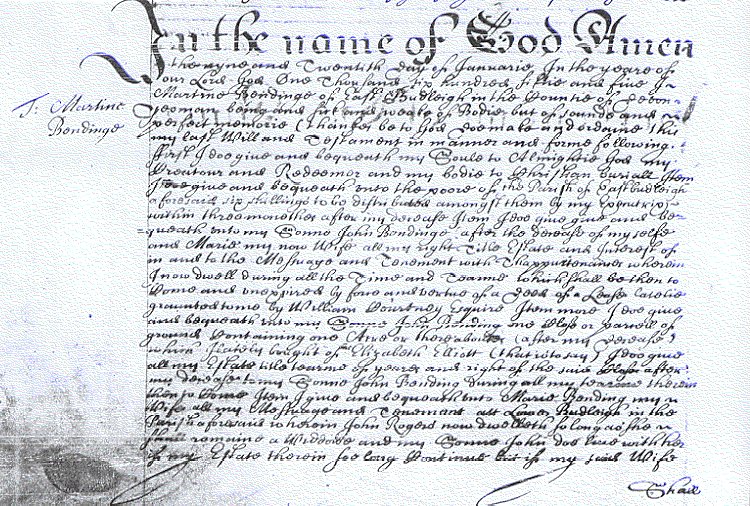 In the name of God Amen
the nyne and Twentith day of Januarie In the yeare of
our Lord God One Thousand six hundred fiftie and five I
T: Martine
Bendinge
Martine Bendinge of East Budleigh in the Countie of Devon
yeoman being and sick and weake of Bodie but of sounde and
perfect memorie (thankes be to God) doe make and ordaine this
my last Will and Testament in manner and forme following
ffirst I doe give and bequeath my Soule to Almightie God my
Creatour and Redeemer and my bodie to Christian buriall Item
I doe give and bequeath unto the poore of the Parish of Eastbudleigh
aforesaid six shillings to be distributed amongst them by my Executrix
within three monthes after my decease Item I doe give and be=
queath unto my Sonne John Bendinge after the decease of my selfe
and Marie my now Wife all my right Title Estate and Interest of
in and to the Messuage and Tenement with Thappurtenances wherein
I now dwell during all the Time and Tearme which shall be then to
Come and unexpired by force and vertue of a Deed of a Lease
graunted to me by William Courtney Esquire Item more I doe give
and bequeath unto my Sonne John Bending one Close or parcell of
ground Containing one Acre or thereabouts (after my decease)
which I lately bought of Elizabeth Elliott (that is to say) I doe give
all my Estate title tearme of yeares and right of the said Close after
my decease to my Sonne John Bending During all my tearme therein
then to Come Item I give and bequeath unto Marie Bending my
Wife all my Messuage and Tenement att Lower Budleigh in the
Parish aforesaid wherein John Rogers now dwelleth so long as she
shall remaine a Widdowe and my Sonne John doe live with her
if my Estate therein soe long Continue but if my said Wife
Shall